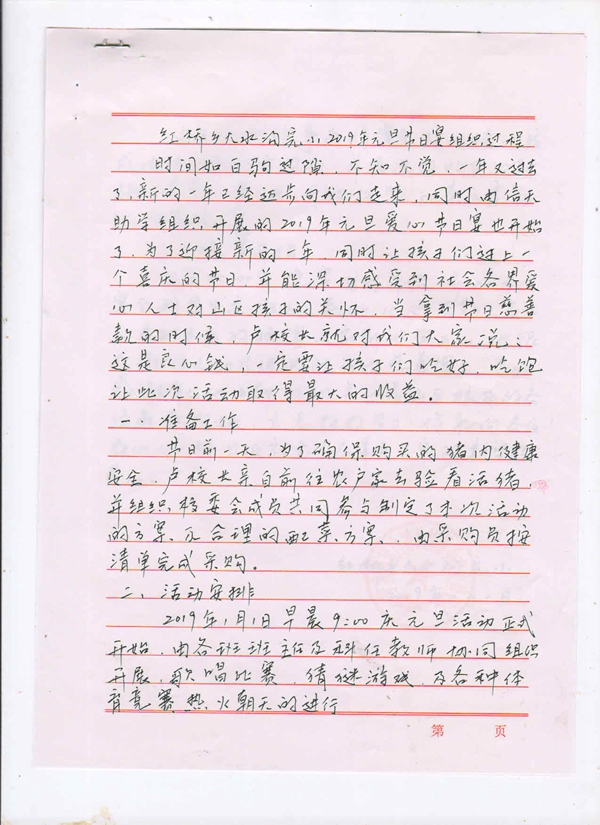 红桥乡大水沟完小2019年元旦节日宴组织过程
时间如白驹过隙，不知不觉，一年又过去
了，新的一年已经迈步向我们走来，同时由信天
助学组织开展的2019年元旦爱心节日宴也开始
了，为了迎接新的一年，同时让孩子们过上一
个喜庆的节日，并能深切感受到社会各界爱
心人士对山区孩子的关怀，当拿到节日慈善
款的时候，卢校长就对我们大家说：
这是良心钱，一定要让孩子们吃好，吃饱
让此次活动取得最大的收益。
一、准备工作
节日前一天，为了确保购买的猪肉健康
安全，卢校长亲自前往农户家去验看活猪，
并组织校委会成员共同参与制定了本次活动
的方案及合理的配菜方案，由采购员按
清单完成采购。
二、活动安排
2019年1月1日早晨9:00庆元旦活动正式
开始，由各班班主任及科任教师协同组织
开展，歌唱比赛，猜谜游戏，及各种体
育竞赛热火朝天的进行
第 页